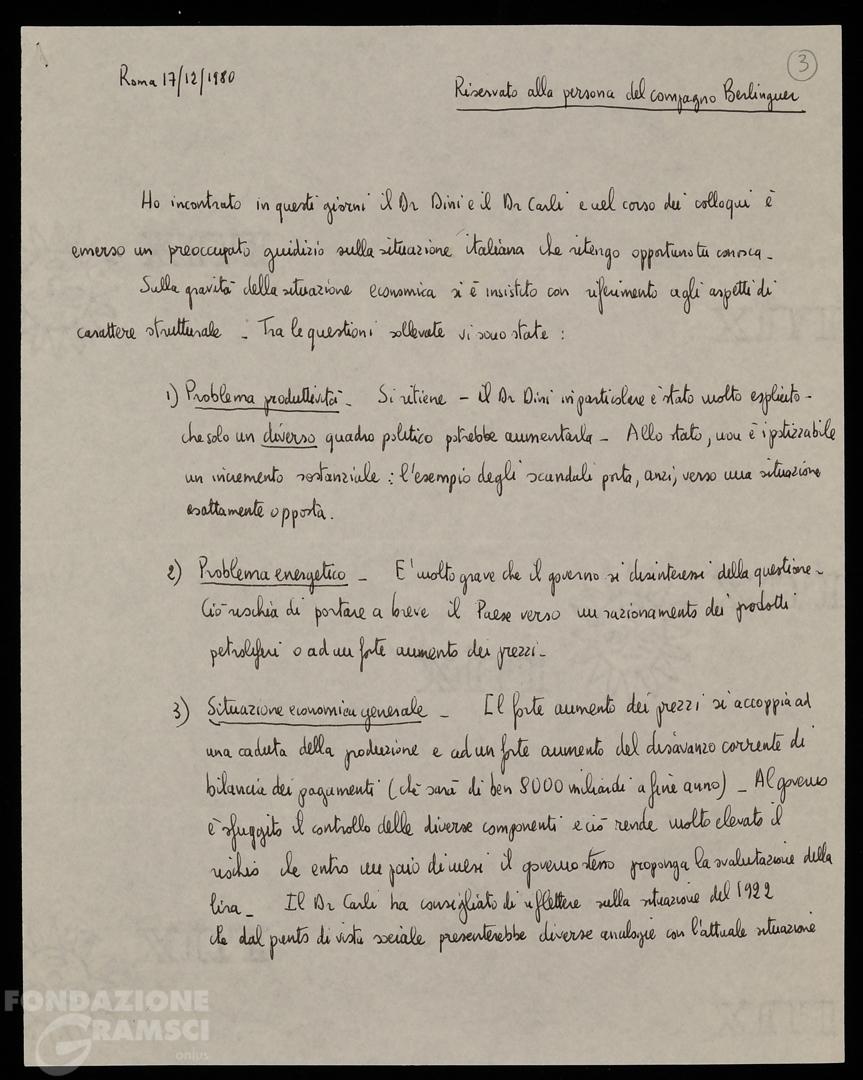 3
Roma 17/12/1980
Riservato alla persona del compagno Berlinguer
Ho incontrato in questi giorni il Dr Dini e il Dr Carli e nel corso dei colloqui è
emerso un preoccupato guidizio sulla situazione italiana che ritengo opportuno tu conosca_
Sulla gravità della situazione economica si è insistito con riferimento agli aspetti di
carattere strutturale _ Tra le questioni sollevate vi sono state :
1) Problema produttività_ Si ritiene - il Dr Dini in particolare è stato molto esplicito -
che solo un diverso quadro politico potrebbe aumentarla _ Allo stato, non è ipotizzabile
un incremento sostanziale : l'esempio degli scandali porta, anzi, verso una situazione
esattamente opposta.
2) Problema energetico _ E' molto grave che il governo si disinteressi della questione_
Ciò rischia di portare a breve il Paese verso un razionamento dei prodotti
petroliferi o ad un forte aumento dei prezzi_
3) Situazione economica generale _ Il forte aumento dei prezzi si accoppia ad
una caduta della produzione e ad un forte aumento del disavanzo corrente di
bilancia dei pagamenti (che sarà di ben 8000 miliardi a fine anno) _ Al governo
è sfuggito il controllo delle diverse componenti e ciò rende molto elevato il
rischio che entro un paio di mesi il governo stesso proponga la svalutazione della
lira_ Il Dr Carli ha consigliato di riflettere sulla situazione del 1922
che dal punto di vista sociale presenterebbe diverse analogie con l'attuale situazione
FONDAZIONE
GRAMSCI
onlus